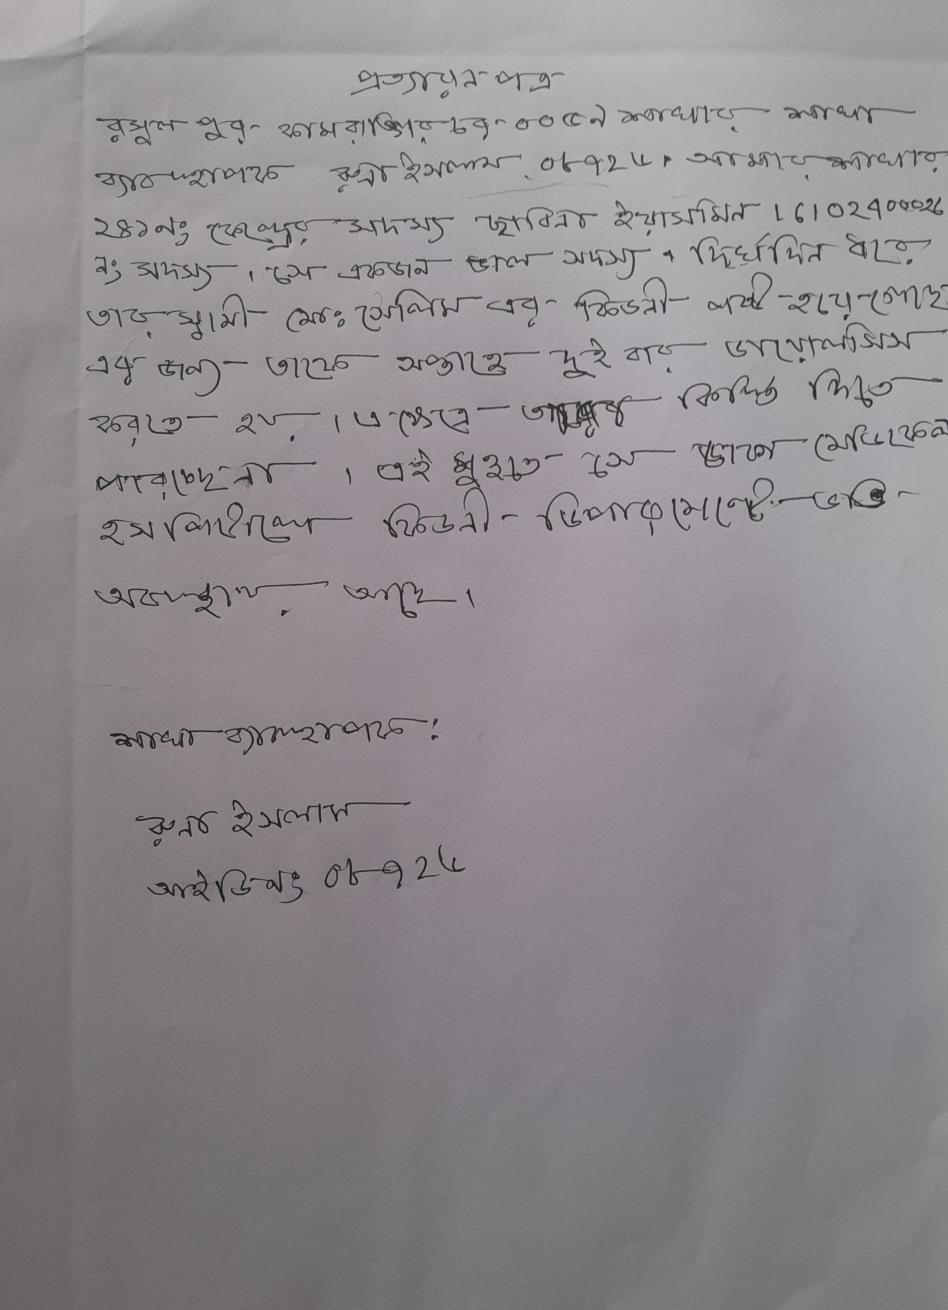 প্রত্যায়ন পত্র
রসুল পুর- কামরাঙ্গিরচর-০০৫৭ শাখার শাখা
ব্যাবস্থাপক রুনা ইসলাম. ০৮৭২৮, আমার শাখার
২৪১নং কেন্দ্রের সদস্য ছাবিনা ইয়াসমিন । 6102400026
নং সদস্য । সে একজন ভাল সদস্য, দির্ঘদিন ধরে
তার স্বামী মোঃ সেলিম এর- কিডনী নষ্ট হয়ে গেছে
এর জন্য তাকে সপ্তাহে দুই বার ডায়োলসিস
করতে হয়. । এ ক্ষেত্রে কিস্তি দিতে
পারছেনা । এই মুহুতে সে ঢাকা মেডিকেল
হসপিটালে কিডনী- ডিপার্টমেন্টে ভর্তি-
অবস্থায়. আছে ।
শাখা ব্যাবস্থাপক :
রুনা ইসলাম
আইডি নং ০৮৭২৮